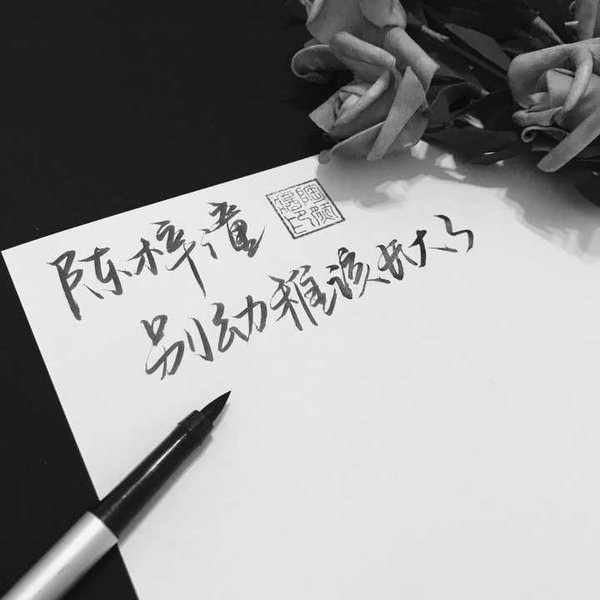 陈梓潼
别幼稚该长大了